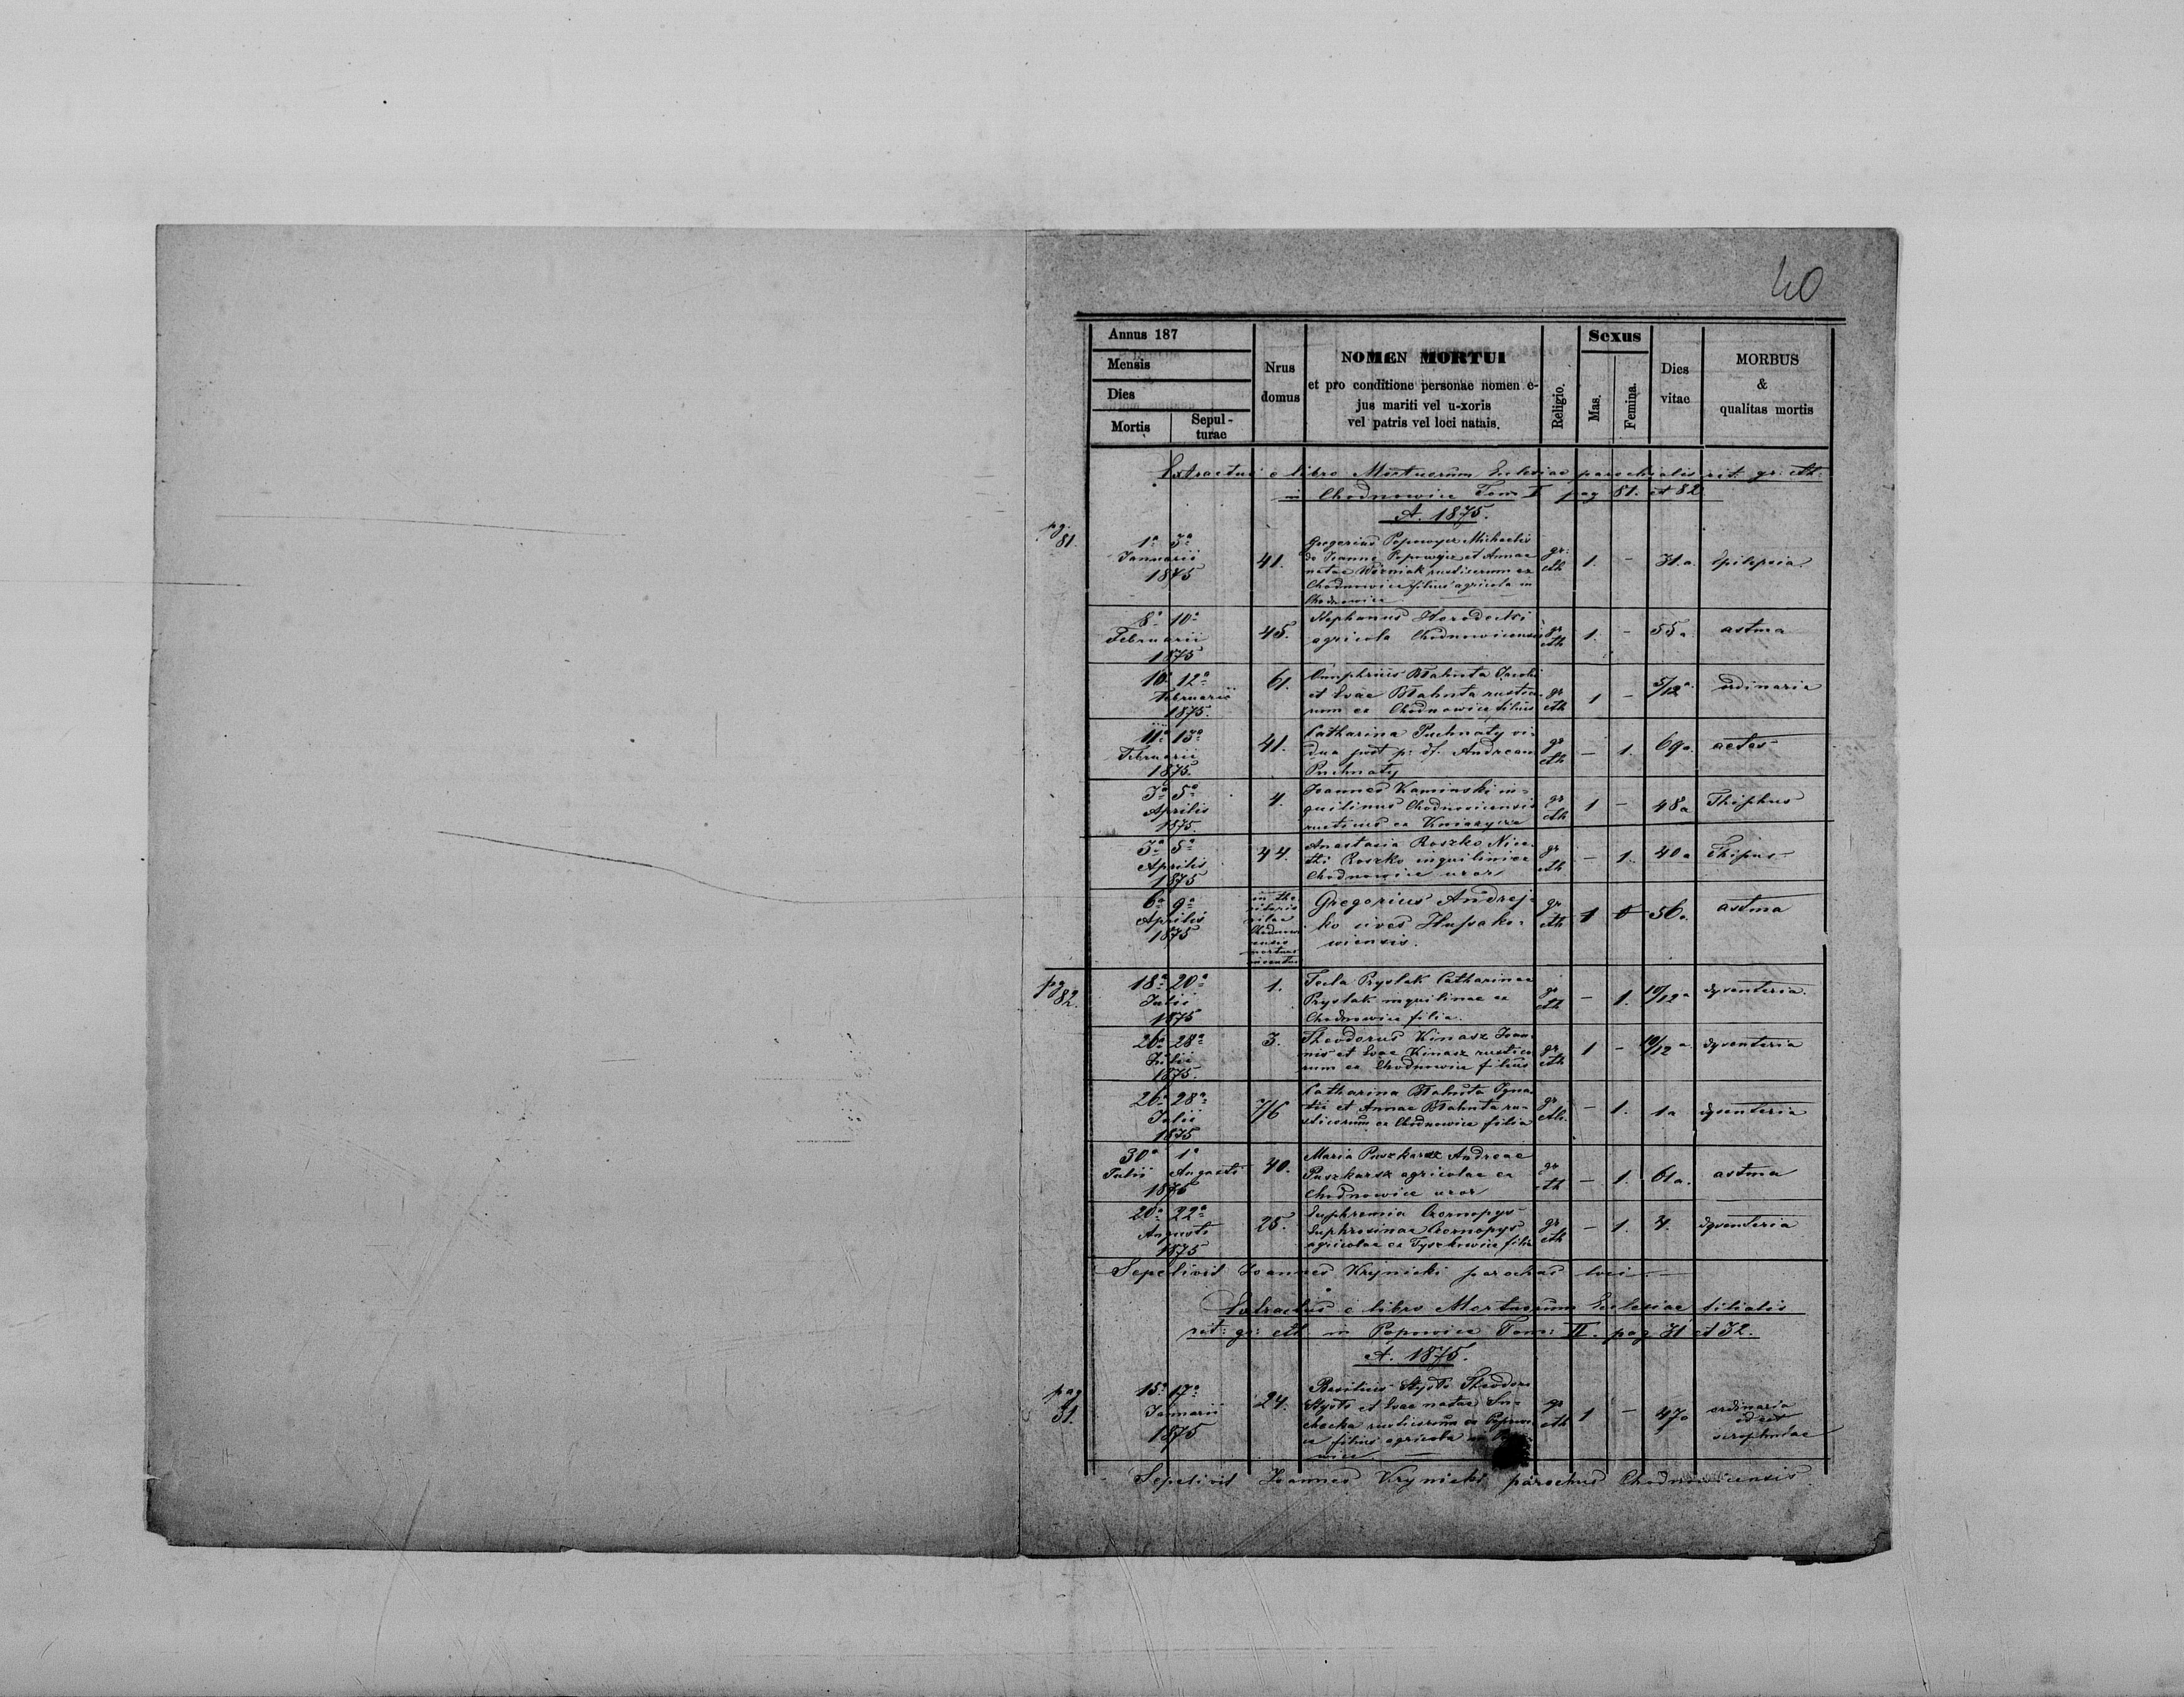 40
Annus 187
Mensis
Dies
Mortis
Sepul-
turae
Nrus
domus
NOMEN MORTUI
et pro conditione personae nomen e-
jus mariti vel u-xoris
vel patris vel loci natais.
Religio.
Sexus
Mas.
Femina.
Dies
vitae
MORBUS
&
qualitas mortis
Extractus e libro Mortuorum Eclesiae parochialis rit. gr. cth:
in Chodnowice Tom I pag 81. et 82
A. 1875.
pg.
81.
1a 3a
Januarii
1875
41.
Gregorius Popowycz Michaelis
de Joanne Popowycz et Annae
natae Woźniak rusticorum ex
Chodnowice filius agricola in
Chodnowice
gr:
cth
1.
-
31.a.
Epilepsia
8a 10a
Februarii
1875
45.
Stephanus Horodecki
agricola Chodnowicensis
gr
cth
1.
-
55a.
astma
10a 12a
Februarii
1875.
61.
Onuphrius Błahuta Jacobi
et Evae Błahuta rustico-
rum ex Chodnowice filius
gr
cth
1
-
5/12a.
ordinaria
11a 13a
Februarii
1875.
41.
Catharina Puchnaty vi-
dua post p. df. Andream
Puchnaty
gr
cth
-
1.
69a.
aetas
3a 5a
Aprilis
1875.
4.
Joannes Kaminski in-
quilinus Chodnovicensis
rusticus ex Kniazyce
gr
cth
1
-
48a
Thiphus
3a 5a
Aprilis
1875
44.
Anastasia Roszko Nice-
tki Roszko inquilini ex
Chodnowice uxor
gr
cth
-
1.
40a
Thipus
6a 9a
Aprilis
1875
Gregorius Andrej-
ko cives Hussako-
wiensis.
gr
cth
1
56a.
astma
pg
82.
18a 20a
Julii
1875
1.
Tecla Prystak Catharinae
Prystak inquilinae ex
Chodnowice filia.
gr
cth
-
1.
10/12a
dysenteria.
26a 28a
Julii
1875.
3.
Theodorus Kinasz Joan-
nis et Evae Kinasz rustico-
rum ex Chodnowice filius
gr
cth
1
-
10/12a.
dysenteria
26a 28a
Julii
1875
7/6
Catharina Błahuta Igna-
tii et Annae Błahuta ru-
sticorum ex Chodnowice filia
gr
cth.
-
1.
1a
dysenteria
30a 1a
Julii Augusti
1875
40.
Maria Puszkarsz Andreae
Puszkarsz agricolae ex
Chodnowice uxor
gr
cth
-
1.
61a.
astma
20a 22a
Augusti
1875
25.
Euphremia Czornopys
Euphrosinae Czornopys
agricolae ex Tyszkowice filia
gr
cth
-
1.
4.
dysenteria
Sepelivit Joannes Krynicki parochus loci.
Extractus e libro Mortuorum Eclesiae filialis
rit: gr: cth in Popowice Tom: II. pag 31 et 32.
A. 1875.
pag
31.
15a 17a
Januarii
1875
24.
Basilius
et Evae natae
rusticorum ex
filius agricola
gr
cth
1
-
47a
ordinaria
Sepelivit Joannes Krynicki parochus Chodnowicensis